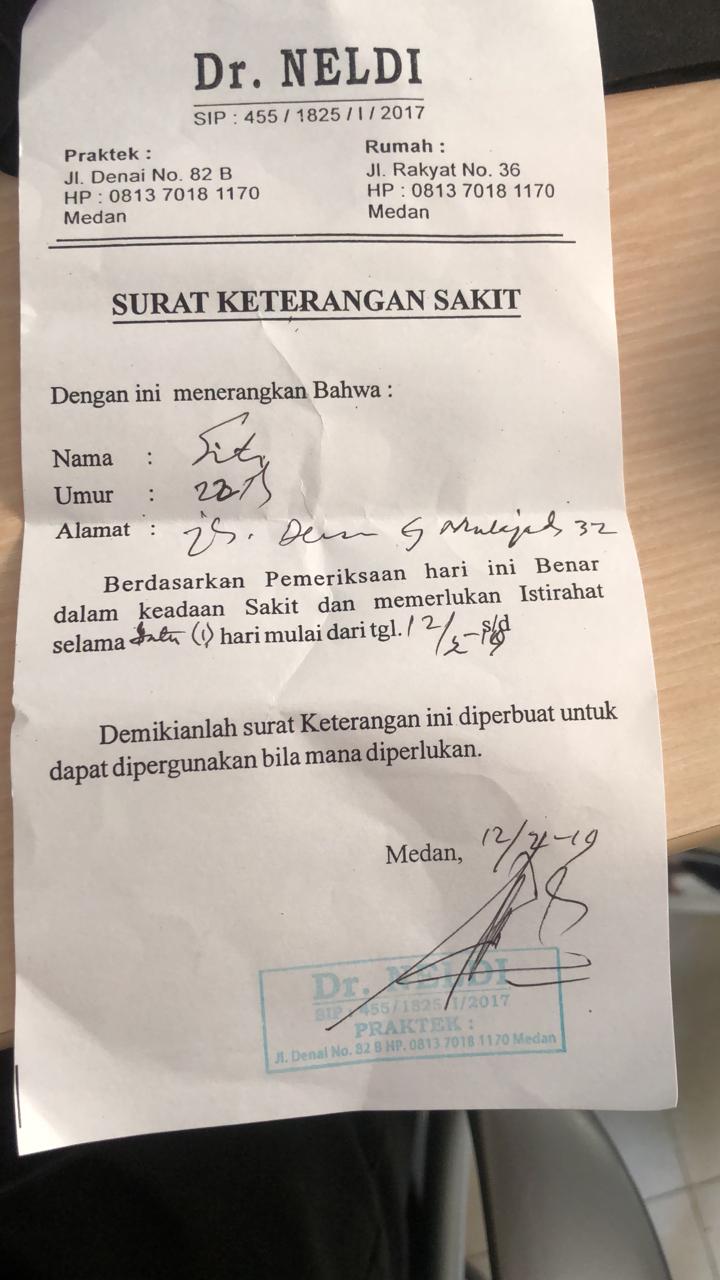 Dr. NELDI
SIP : 455 / 1825 / I / 2017
Praktek :
Jl. Denai No. 82 B
HP : 0813 7018 1170
Medan
Rumah :
Jl. Rakyat No. 36
HP : 0813 7018 1170
Medan
SURAT KETERANGAN SAKIT
Dengan ini menerangkan Bahwa :
Nama : Siti
Umur : 22
Alamat : 32
Berdasarkan Pemeriksaan hari ini Benar
dalam keadaan Sakit dan memerlukan Istirahat
selama Satu (1) hari mulai dari tgl. 12/ s/d
Demikianlah surat Keterangan ini diperbuat untuk
dapat dipergunakan bila mana diperlukan.
Medan, 12/ -19
Dr. NELDI
SIP : 455/1825/I/2017
PRAKTEK :
Jl. Denai No. 82 B HP. 0813 7018 1170 Medan